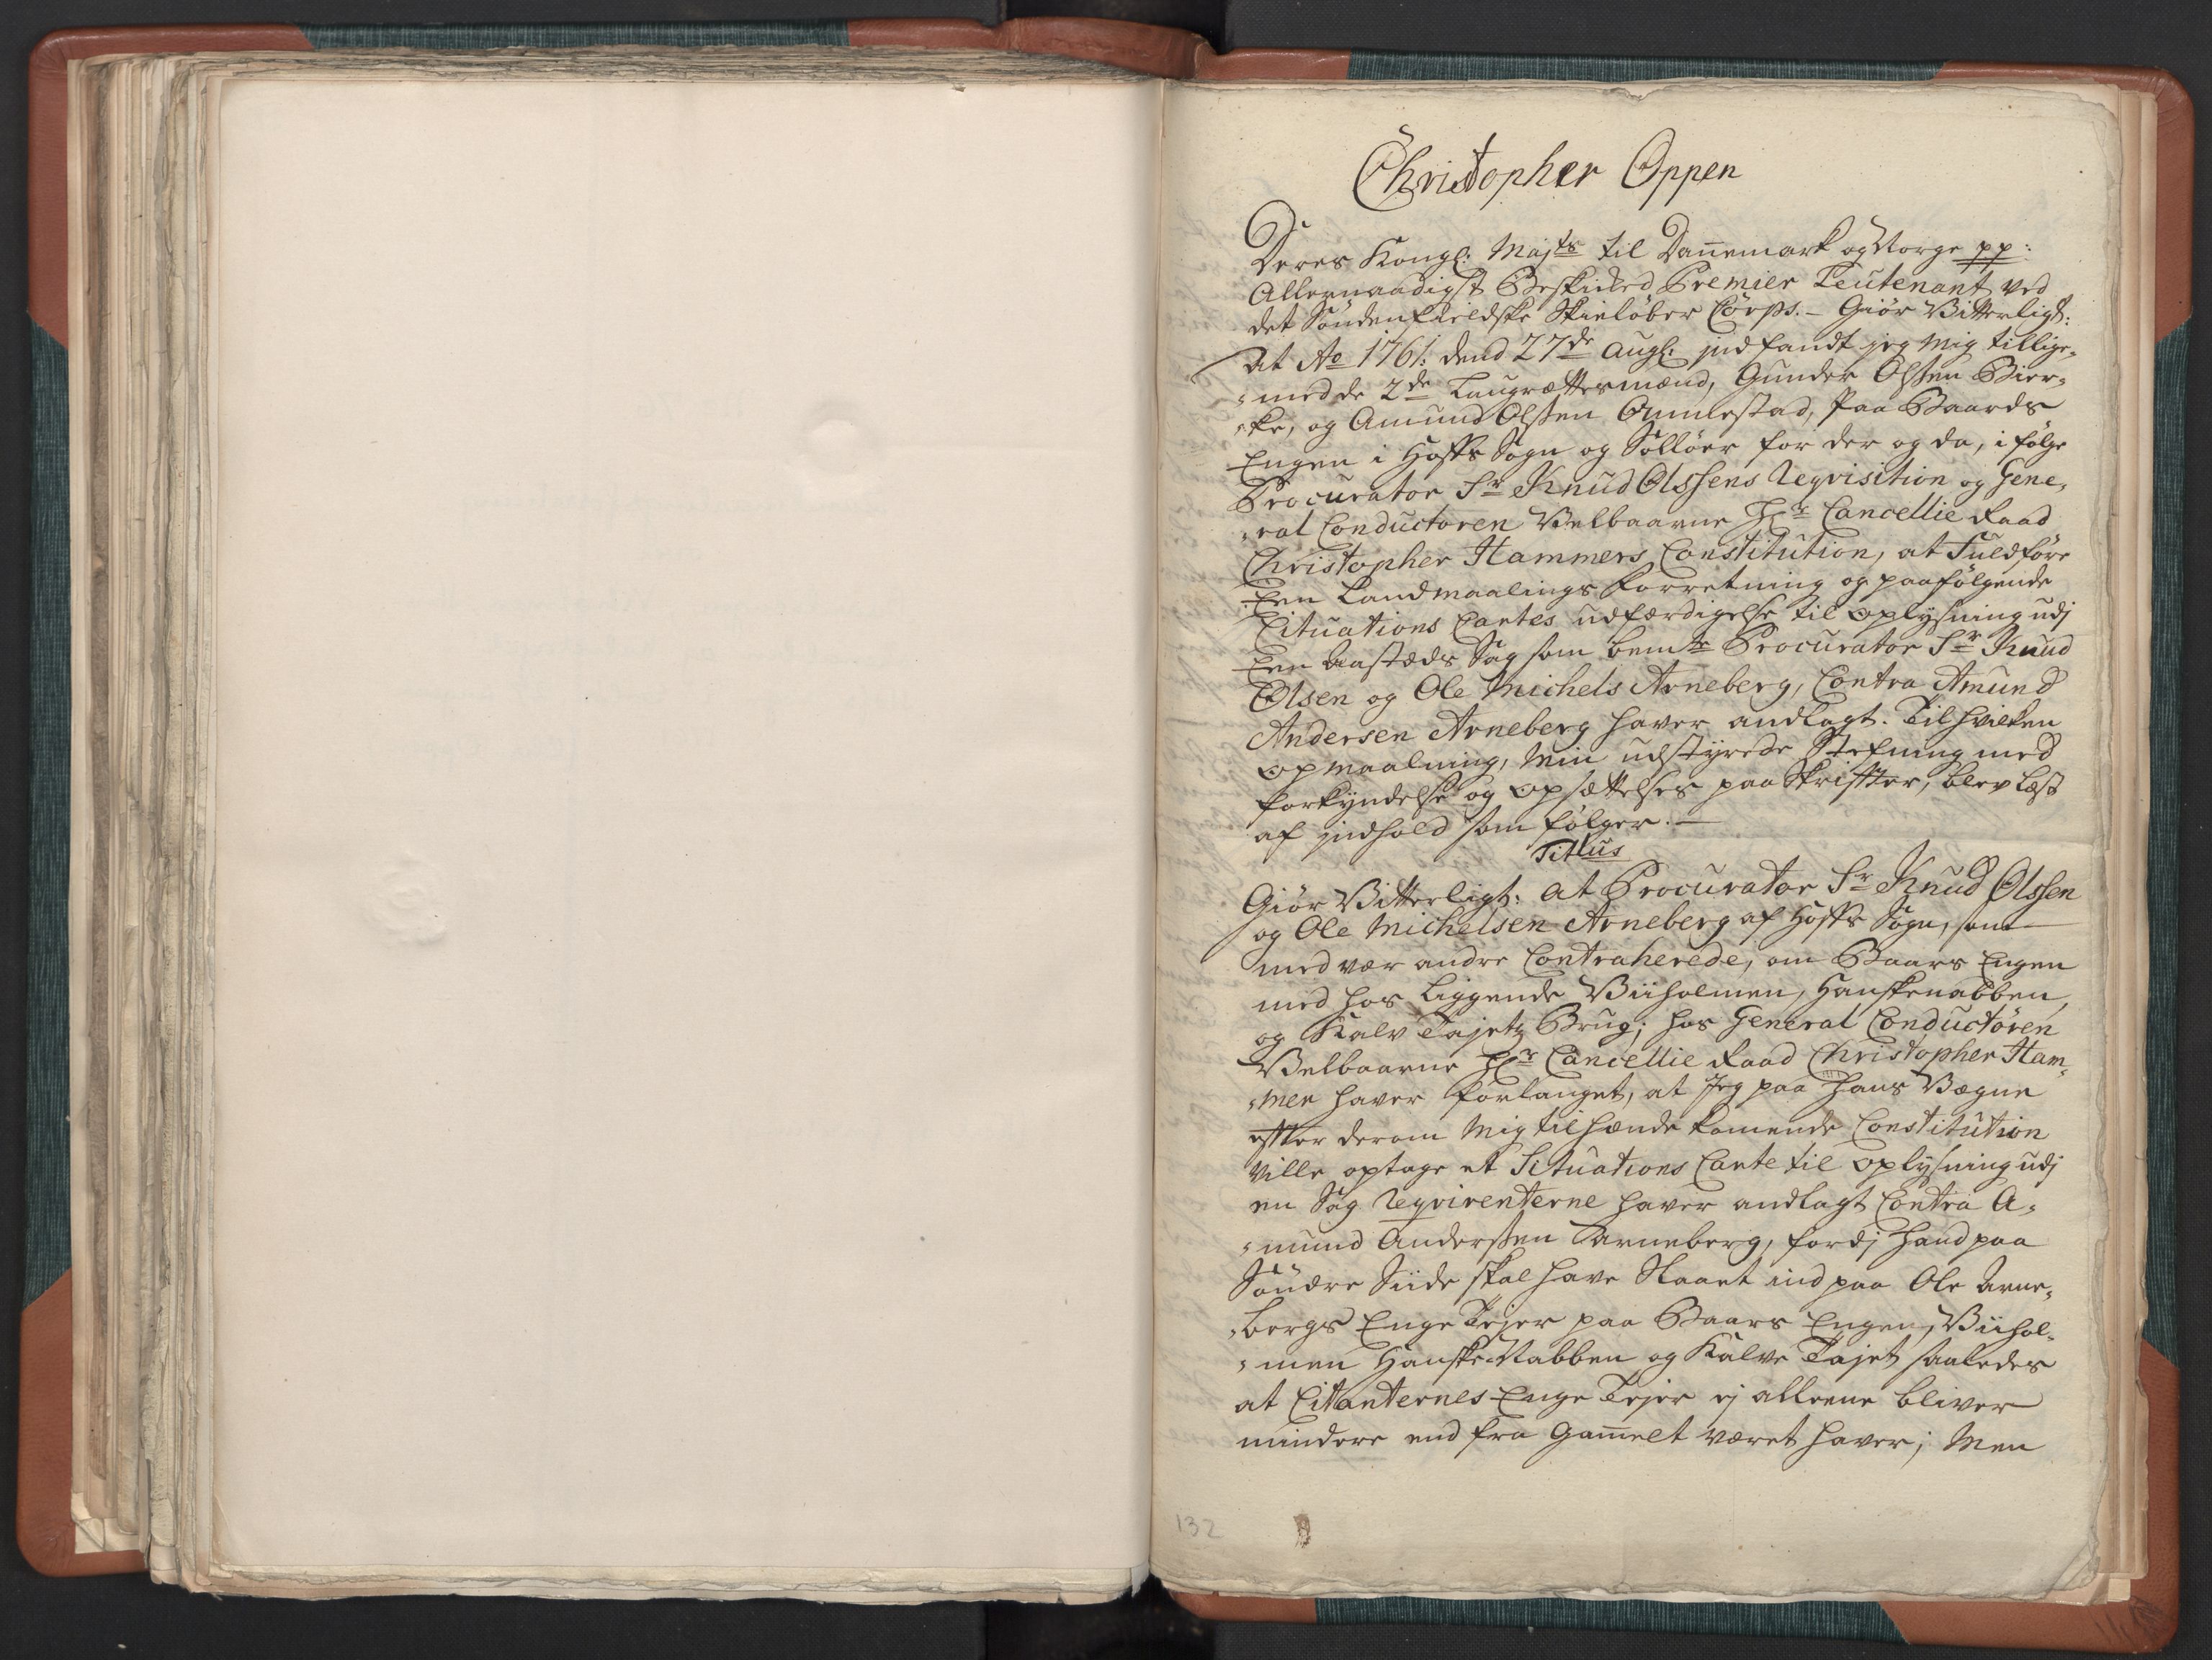 Christopher Oppen
Deres Kongl: Majts til Dannemark og Norge pp:
Allernaadigst Beskicked Premier Leutenant ved
det Søndenfieldske Skieløber Corps. – Giør Vitterligt:
at Ao 1761: dend 27de Augl: indfandt jeg mig tillige-
-med de 2de Laugrættesmænd, Gunder Olssen Bier-
-ke, og Amund Olssen Ommestad, paa Baards
Engen i Hoffs Sogn og Solløer for der og da, i følge
Procurator Sr Knud Olssens Reqvisition og Gene-
-ral Conductoren Velbaarne Hr Cancellie Raad
Christopher Hammers Constitution, at Fuldføre
Een Landmaalings Forretning og paafølgende
Cituations Cartes udfærdigelse til oplysning udj
Een Aastæds Sag som bemte Procurator Sr Knud
Olsen og Ole Michels Arneberg, Contra Amund
Andersen Arneberg haver andlagt. Til hvilken
opmaalning, min udstyrede Stefning med
forkyndelse og opsættelses paaskriffter, blev læst
af indhold som følger. –
Titlus
Giør Vitterligt: at Procurator Sr Knud Olssen
og Ole Michelsen Arneberg af Hoffs Sogn, som
med vær andre Contraherede, om Baars Engen
med hos liggende Viiholmen, Hanskenabben,
og Kalv Tajetz Brug; hos General Conductøren
Velbaarne Hr Cancellie Raad Christopher Ham-
-mer haver forlanget, at Jeg paa Hans Vægne
effter derom mig tilhænde komende Constitution
ville optage et Situations Carte til oplysning udj
en Sag Reqvirenterne haver andlagt Contra A-
-mund Anderssen Arneberg, fordj hand paa
Søndre Siide skal have Slaaet ind paa Ole Arne-
-bergs Enge Tejer paa Baars Engen, Viihol-
-men Hanske Nabben og Kalve Tajet saaledes
at Citanternes Enge Tejer ej alleene bliver
mindere end fra Gammelt været haver; Men
132